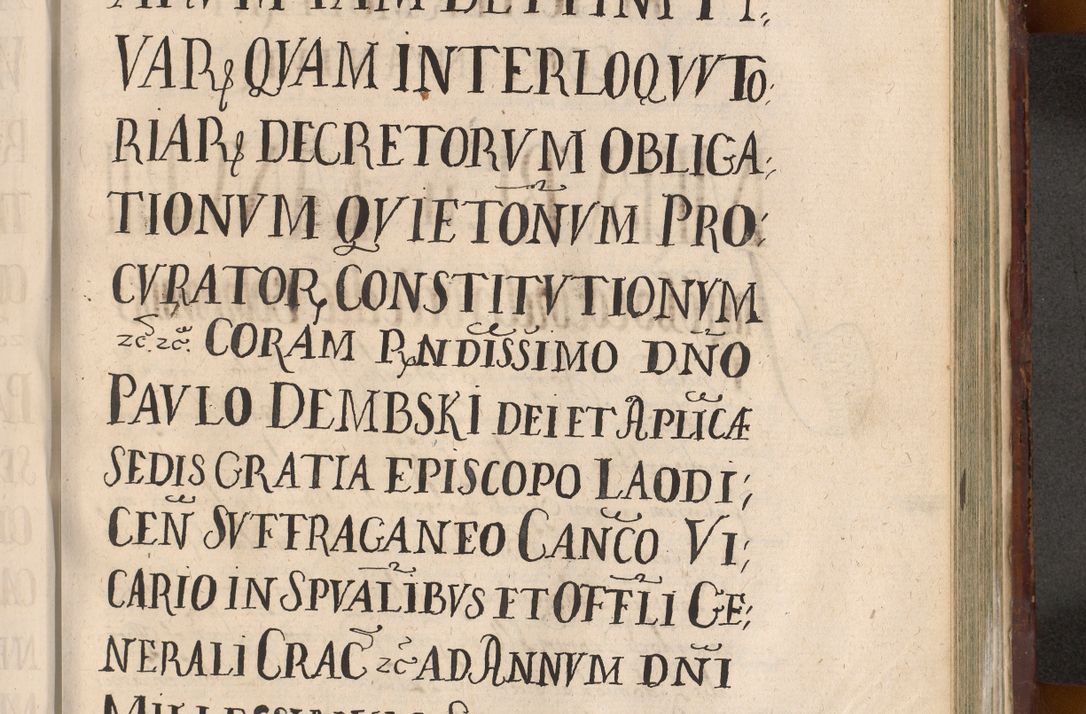 VARꝝ QVAM INTERLOQVVTO:
RIARꝝ DECRETORVM OBLIGA:
TIONVM QVIETOÑVM PRO:
CVRATORꝝ CONSTITVTIONVM
zc̃. zc̃. CORAM RṼNDISSIMO DÑO
PAVLO DEMBSKI DEI ET APLICÆ
SEDIS GRATIA EPISCOPO LAODI:
CEÑ SVFFRAGANEO CANCO VI:
CARIO IN SPVALIBVS ET OFFLI GE:
NERALI CRAC̃ zc̃ AD ANNVM DÑI